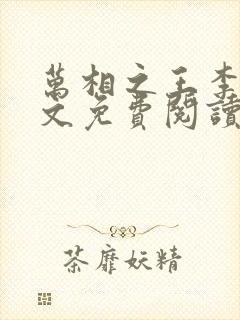 萬相之王李
文免費閱讀
茶靡妖精